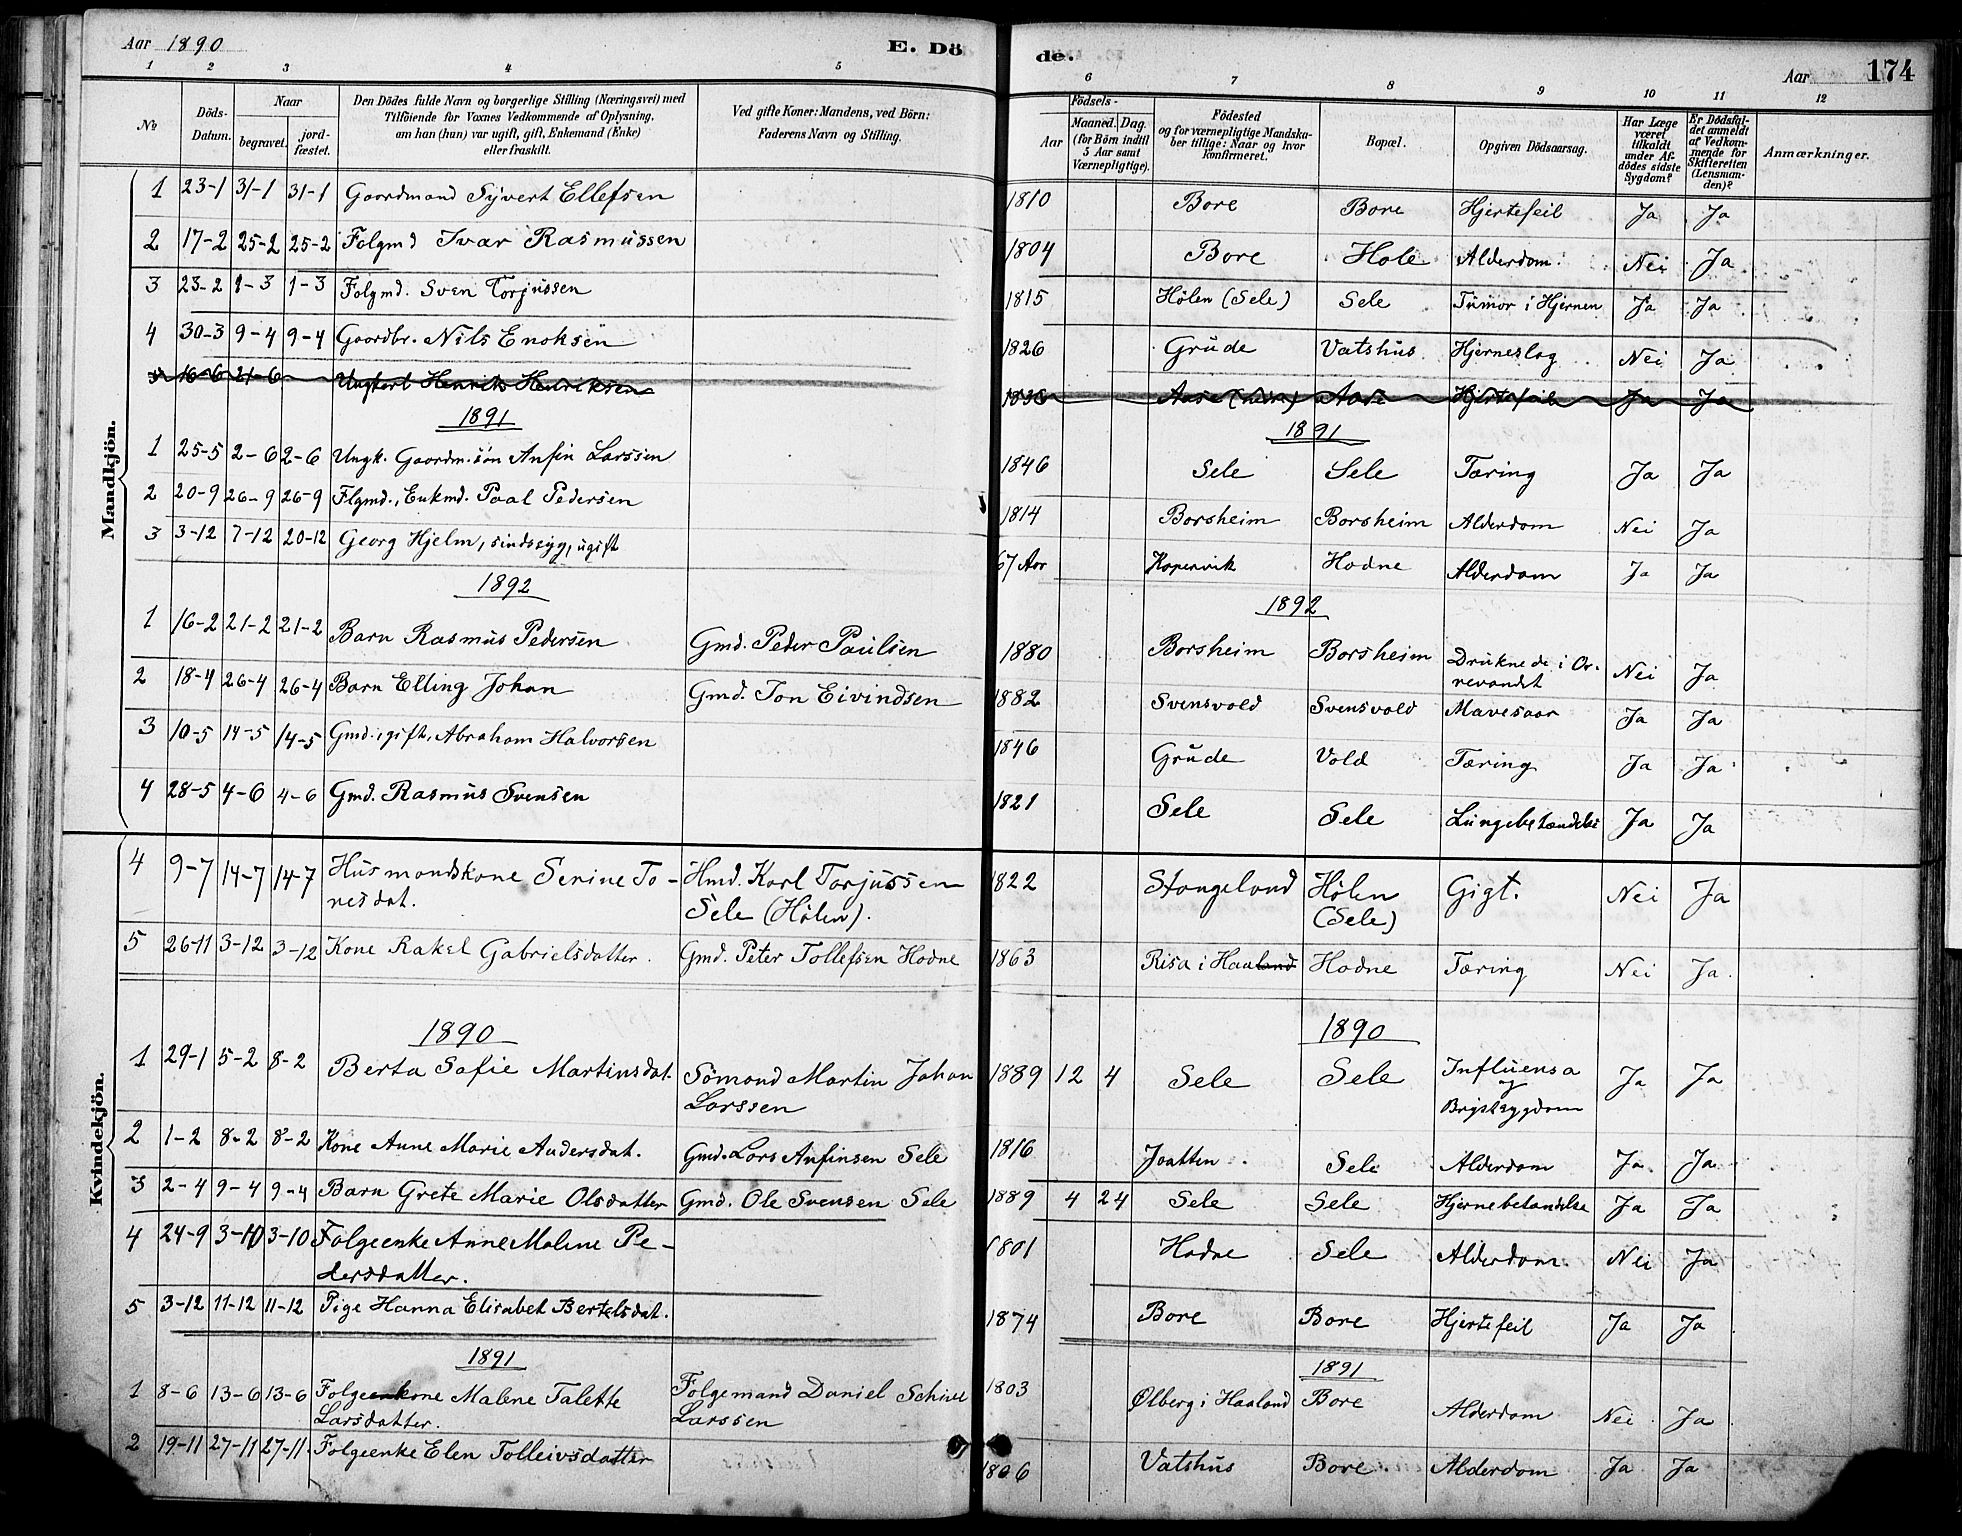 Aar 1890 E. Dö
de. Aar 174
1 2 3 4 5
6 7 8 9 10 11 12
№
Döds-Datum.
Naar
begravet.
jord-fæstet.
Den Dödes fulde Navn og borgerlige Stilling (Næringsvei) med
Tilföiende for Voxnes Vedkommende af Oplysning,
om han (hun) var ugift, gift, Enkemand (Enke)
eller fraskilt.
Ved gifte Koner: Mandens, ved Börn:
Faderens Navn og Stilling.
Födsels-
Aar
Maaned. Dag.
(for Börn indtil
5 Aar samt
Værnepligtige).
Födested
og for værnepligtige Mandska-
ber tillige: Naar og hvor
konfirmeret.
Bopæl.
Opgiven Dödsaarsag.
Har Læge
været
tilkaldt
under Af-
dödes sidste
Sygdom?
Er Dödsfal-
det anmeldt
af Vedkom-
mende for
Skifteretten
(Lensman-
den)?
Anmærkninger.
Mandkjön.
1 23-1 31-1 31-1 Gaardmand Syvert Ellefsen 1810 Bore Bore Hjertefeil Ja Ja
2 17-2 25-2 25-2 Folgmd Ivar Rasmussen 1804 Bore Hole Alderdom Nei Ja
3 23-2 1-3 1-3 Folgmd. Sven Torjussen 1815 Hölen (Sele) Sele Tumor i Hjernen Ja Ja
4 30-3 9-4 9-4 Gaardbr. Nils Enoksen 1826 Grude Vatshus Hjerneslag Nei Ja
5 16-6 21-6 Ungkarl Henrik Henriksen Hjertefeil Ja Ja
1891 1891
1 25-5 2-6 2-6 Ungk. Gaardm.sön Anfin Larssen 1846 Sele Sele Tæring Ja Ja
2 20-9 26-9 26-9 Flgmd., Enkmd. Paal Pedersen 1814 Borsheim Borsheim Alderdom Nei Ja
3 3-12 7-12 20-12 Georg Hjelm, sindssyg, ugift 67 Aar Kopervik Hodne Alderdom Ja Ja
1892 1892
1 16-2 21-2 21-2 Barn Rasmus Pedersen Gmd. Peder Paulsen 1880 Borsheim Borsheim Druknede i Or-
revandet Nei Ja
2 18-4 26-4 26-4 Barn Elling Johan Gmd. Jon Eivindsen 1882 Svensvold Svensvold Mavesaar Ja Ja
3 10-5 14-5 14-5 Gmd., gift, Abraham Halvorsen 1846 Grude Vold Tæring Ja Ja
4 28-5 4-6 4-6 Gmd. Rasmus Svensen 1821 Sele Sele Lungebetændelse Ja Ja
Kvindekjön.
4 9-7 14-7 14-7 Husmandskone Serine To-
nesdat. Hmd. Karl Torjussen
Sele (Hölen). 1822 Stangeland Hölen
(Sele) Gigt. Nei Ja
5 26-11 3-12 3-12 Kone Rakel Gabrielsdatter. Gmd. Peter Tollefsen Hodne 1863 Risa i Haaland Hodne Tæring Nei Ja.
1890 1890
1 29-1 5-2 8-2 Berta Sofie Martinsdat. Sömand Martin Johan
Larssen 1889 12 4 Sele Sele Influensa
og
Brystsygdom Ja Ja
2 1-2 8-2 8-2 Kone Anne Marie Andersdat. Gmd. Lars Anfinsen Sele 1816 Jaatten Sele Alderdom Ja Ja
3 2-4 9-4 9-4 Barn Grete Marie Olsdatter Gmd. Ole Svensen Sele 1889 4 24 Sele Sele Hjernebetændelse Ja Ja
4 24-9 3-10 3-10 Folgeenke Anne Malene Pe-
dersdatter. 1801 Hodne Sele Alderdom Nei Ja
5 3-12 11-12 11-12 Pige Hanna Elisabet Bertelsdat. 1874 Bore Bore Hjertefeil Ja Ja
1891 1891
1 8-6 13-6 13-6 Folgeenkone Malene Talette
Larsdatter. Folgemand Daniel Schive
Larssen 1803 Ølberg i Haaland Bore Alderdom Nei Ja
2 19-11 27-11 27-11. Folgeenke Elen Tolleivsdatter 1806 Vatshus Bore Alderdom Ja Ja